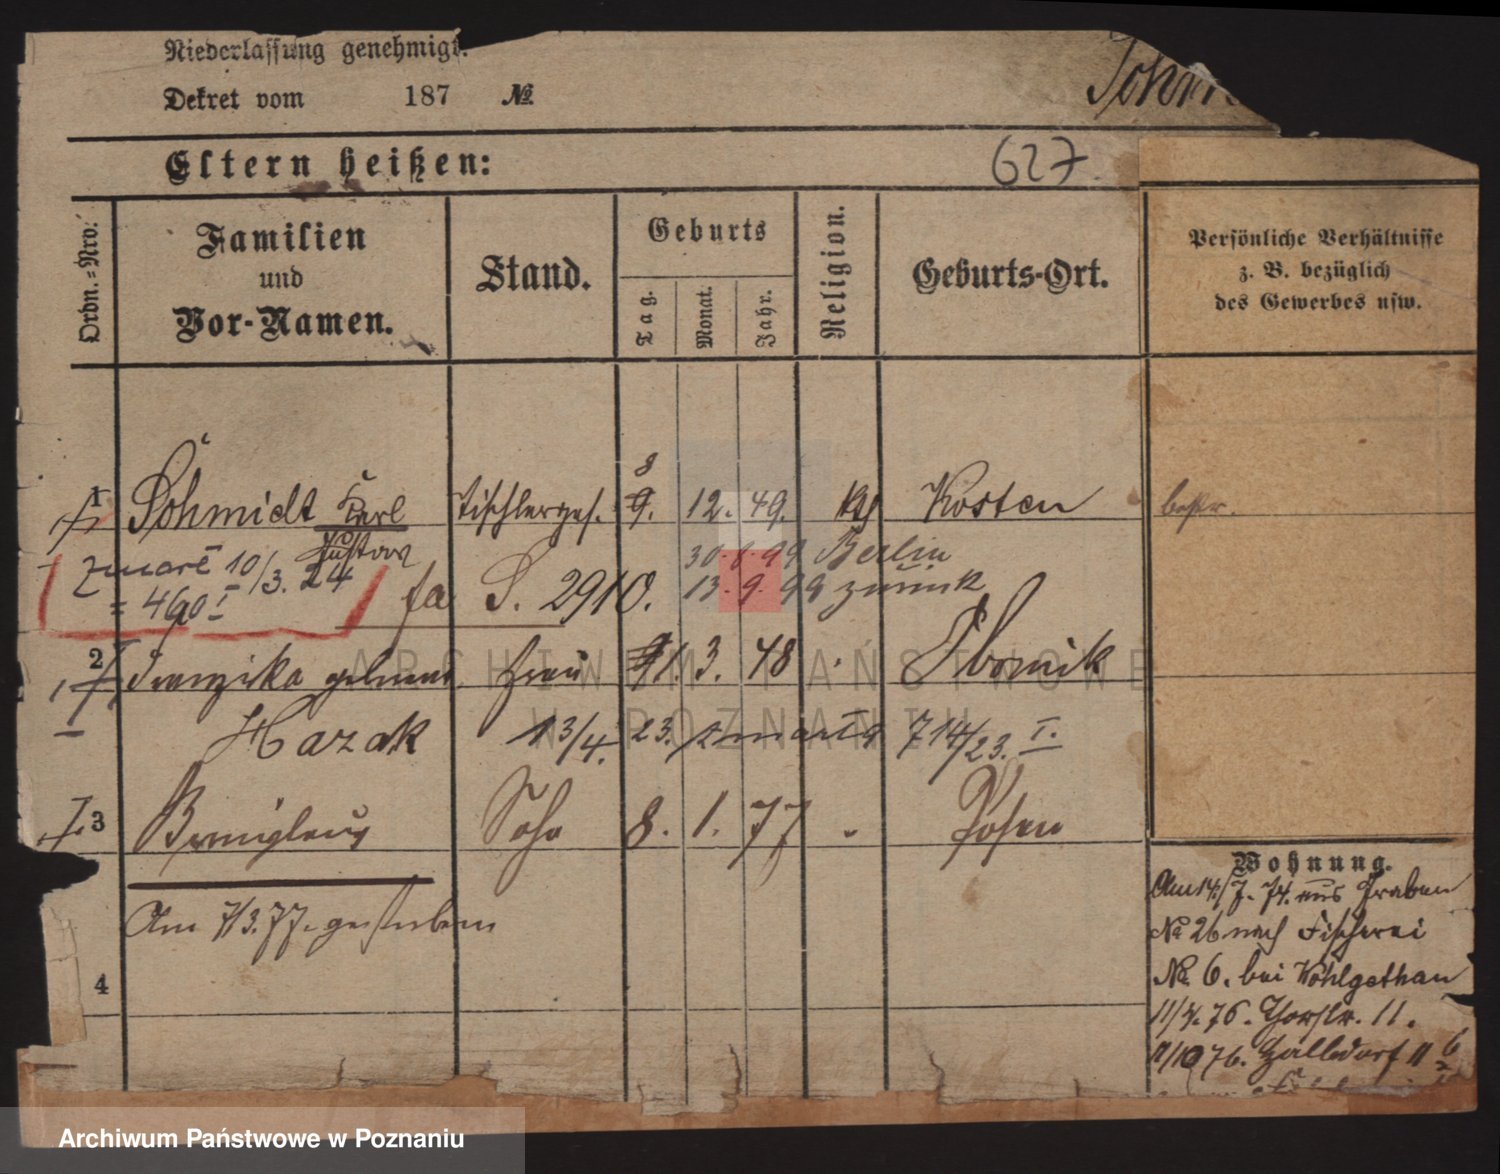 Niederlassung genehmigt.
Dekret vom 187 №
Eltern heißen:
627.
Ordn.=Nro.
Familien
und
Vor-Namen.
Stand.
Geburts
Tag.
Monat.
Jahr.
Religion.
Geburts-Ort.
Persönliche Verhältnisse
z. B. bezüglich
des Gewerbes usw.
8
1 Schmidt Karl Tischlerges. 9. 12. 49. Kosten
Gustav
30. 8. 99 Berlin
13. 9. 99 zurück
zmarł 10/3. 24
= 460 I
fa S. 2910.
2 Franziska geborene Frau 1. 3. 48 Obornik
Hazak 13/4. 23. zmarła 714/23. I.
3 Bronislaus Sohn 8. 1. 77 Posen
Am 7/3. 77. gestorben
4
Wohnung.
Am 14/7. 74. aus Graben
№ 26 nach Fischerei
№ 6. bei Wohlgethan
11/4. 76. Thorstr. 11.
11/10 76. Halbdorf
ARCHIWUM PAŃSTWOWE
W POZNANIU
Archiwum Państwowe w Poznaniu